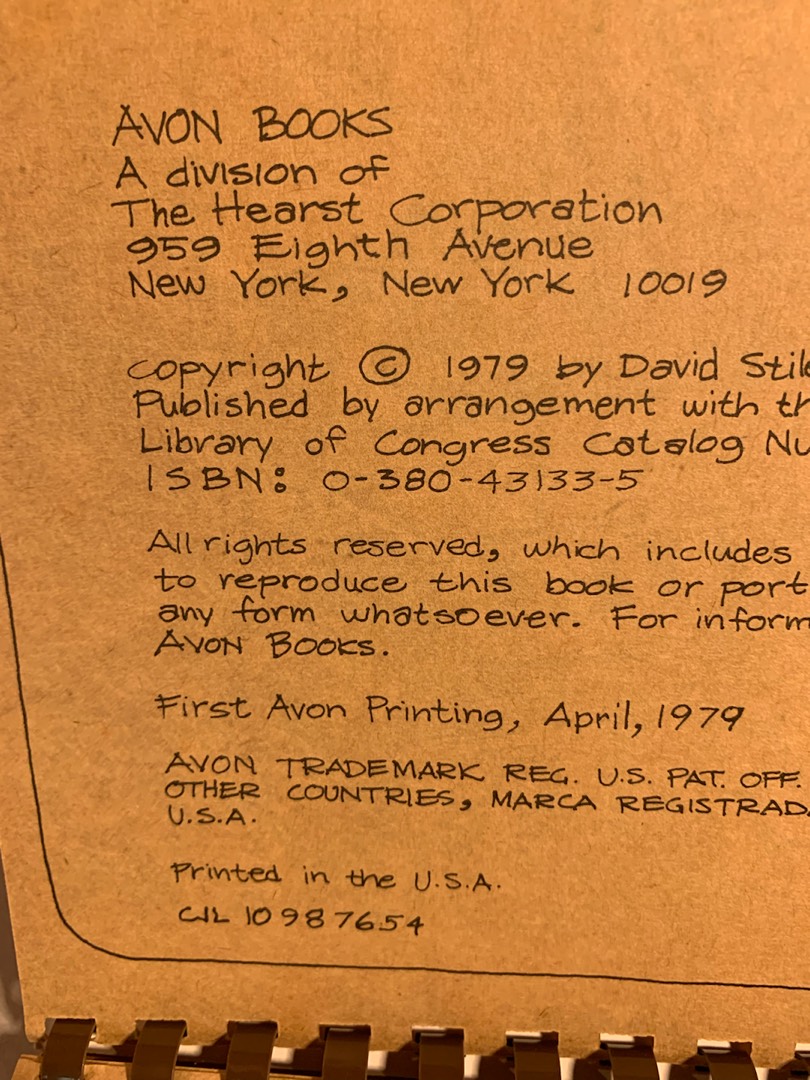 AVON BOOKS
A division of
The Hearst Corporation
959 Eighth Avenue
New York, New York 10019
Copyright © 1979 by David
Published by arrangement with
Library of Congress Catalog
ISBN: 0-380-43133-5
All rights reserved, which includes
to reproduce this book or
any form whatsoever. For
AVON BOOKS.
First Avon Printing, April, 1979
AVON TRADEMARK REG. U.S. PAT. OFF.
OTHER COUNTRIES, MARCA
U.S.A.
Printed in the U.S.A.
10 9 8 7 6 5 4